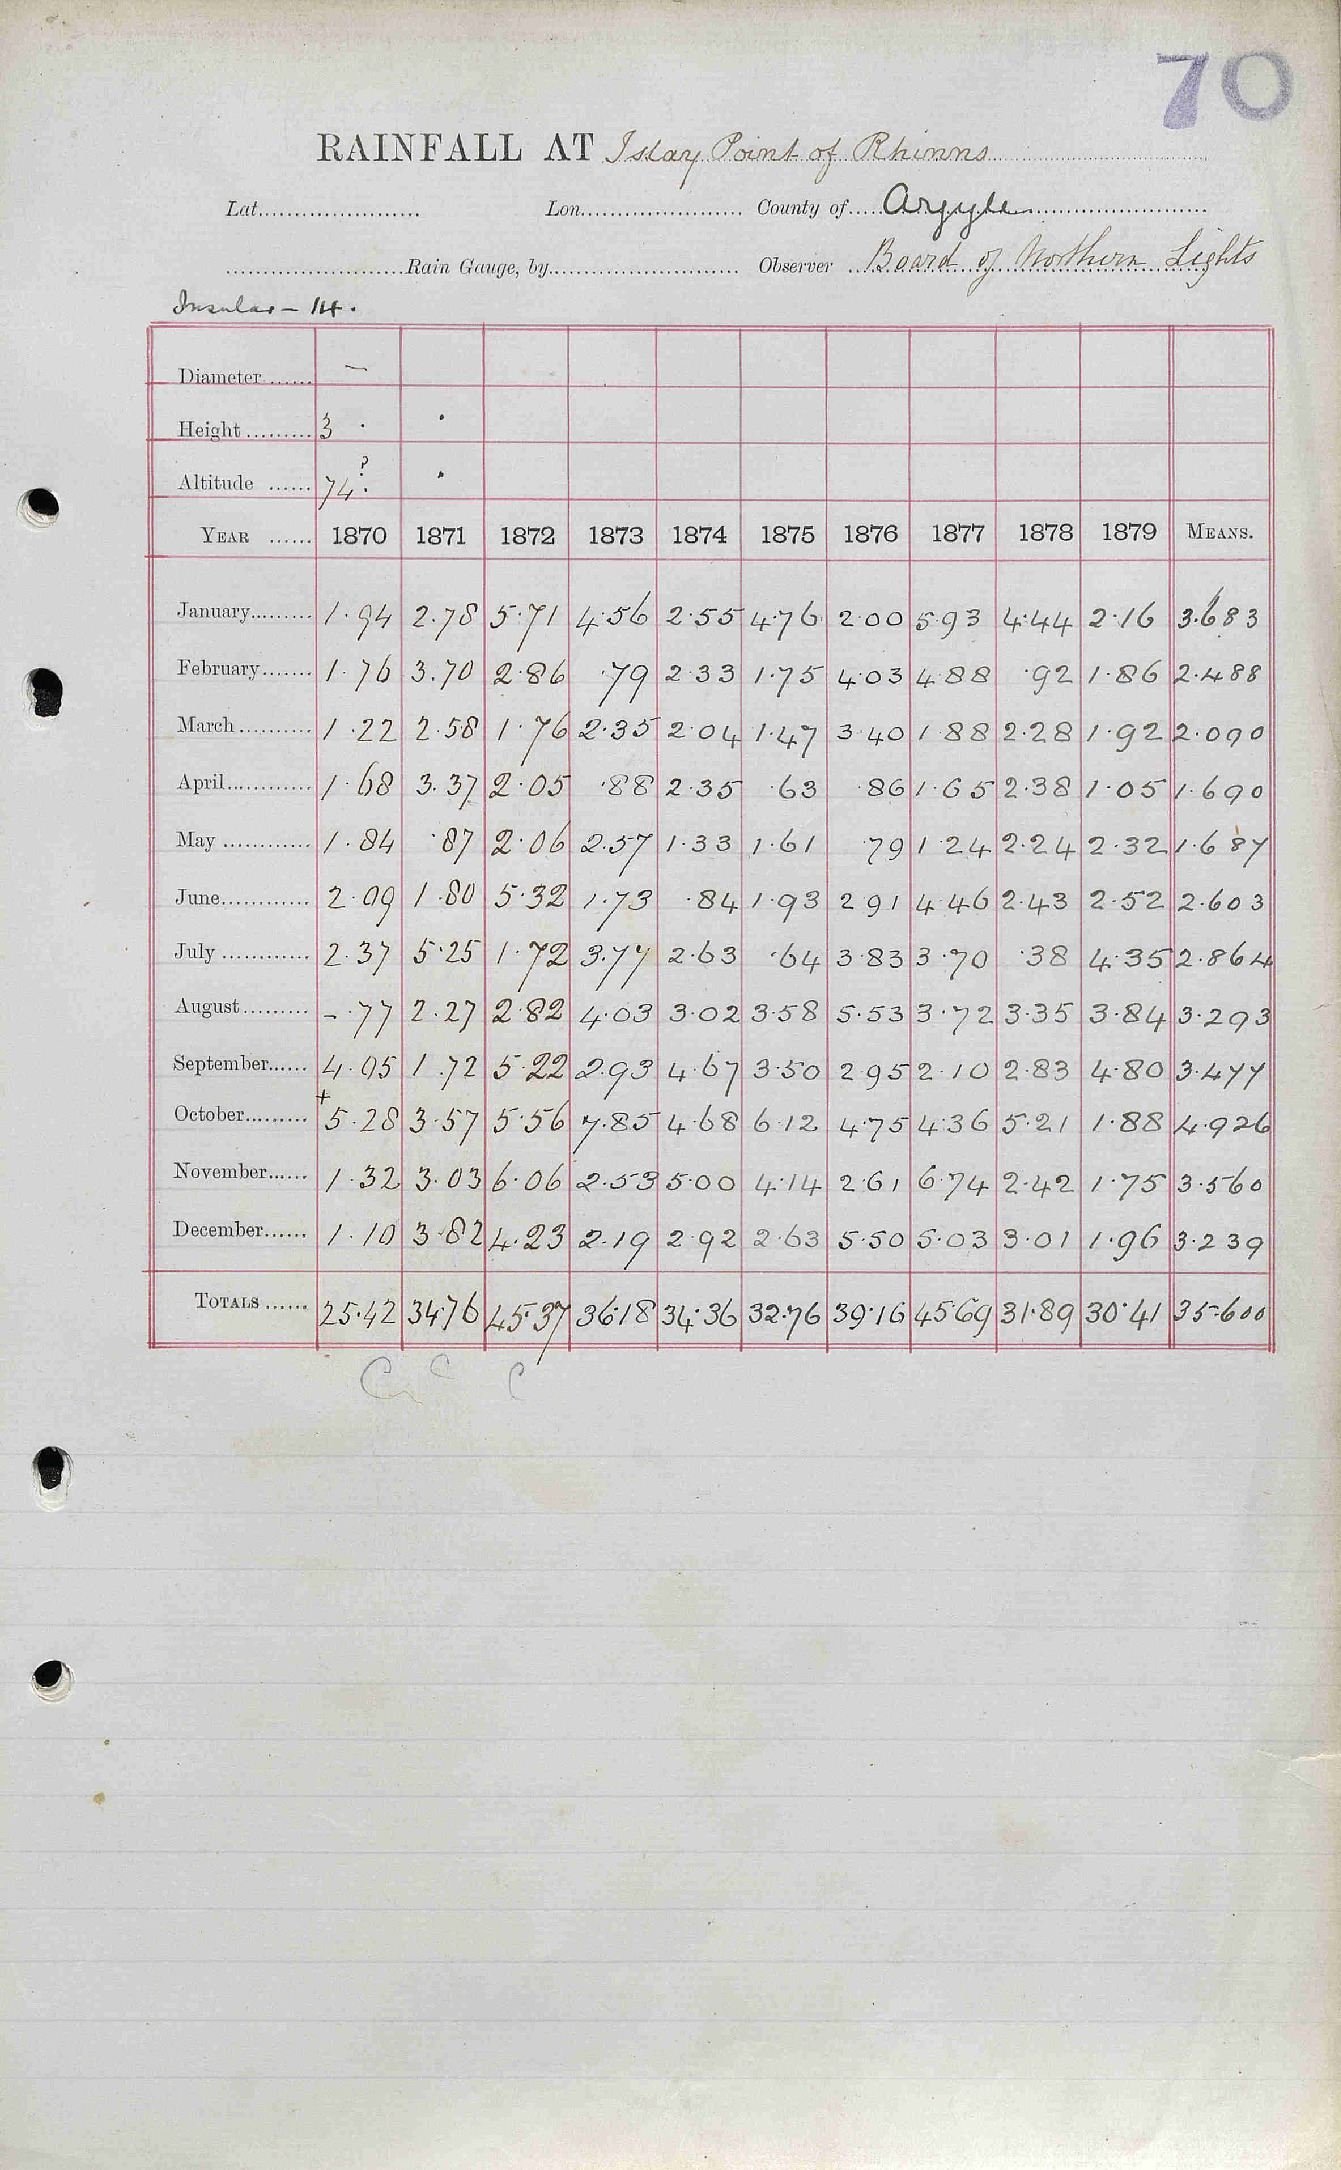 70
RAINFALL AT Islay Point of Rhinns
Lat. Lon. County of Argyle
Rain Gauge, by Observer Board of Northern Lights
Insular - 14.
Diameter —
Height 3 . .
Altitude 74 ? . .
YEAR 1870 1871 1872 1873 1874 1875 1876 1877 1878 1879 MEANS.
January 1.94 2.78 5.71 4.56 2.55 4.76 2.00 5.93 4.44 2.16 3.683
February 1.76 3.70 2.86 .79 2.33 1.75 4.03 4.88 .92 1.86 2.488
March 1.22 2.58 1.76 2.35 2.04 1.47 3.40 1.88 2.28 1.92 2.090
April 1.68 3.37 2.05 .88 2.35 .63 .86 1.65 2.38 1.05 1.690
May 1.84 .87 2.06 2.57 1.33 1.61 .79 1.24 2.24 2.32 1.687
June 2.09 1.80 5.32 1.73 .84 1.93 2.91 4.46 2.43 2.52 2.603
July 2.37 5.25 1.72 3.77 2.63 .64 3.83 3.70 .38 4.35 2.864
August - .77 2.27 2.82 4.03 3.02 3.58 5.53 3.72 3.35 3.84 3.293
September 4.05 1.72 5.22 2.93 4.67 3.50 2.95 2.10 2.83 4.80 3.477
October +5.28 3.57 5.56 7.85 4.68 6.12 4.75 4.36 5.21 1.88 4.926
November 1.32 3.03 6.06 2.53 5.00 4.14 2.61 6.74 2.42 1.75 3.560
December 1.10 3.82 4.23 2.19 2.92 2.63 5.50 5.03 3.01 1.96 3.239
TOTALS 25.42 34.76 45.37 36.18 34.36 32.76 39.16 45.69 31.89 30.41 35.600
C C C